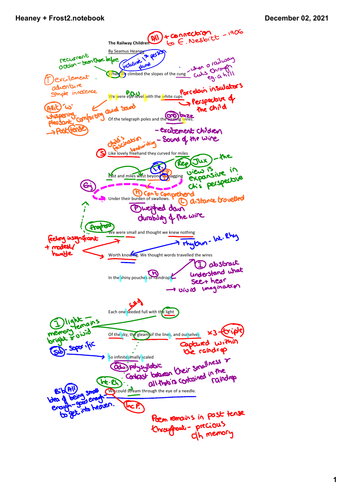 Heaney + Frost2.notebook
December 02, 2021
All + connection
to E. Nesbitt - 1906
The Railway Children
By Seamus Heaney
recurrent
inclusive 1st person
climbed the slopes of the
when a railway
cuts through
eg. a hill
excitement
adventure
simple innocence
POV
Porcelain insulators
We were eye-level with the white cups
Perspective of
the child
'w'
whispering
comforting and sound
Of the telegraph poles and the sizzling wires.
- excitement children
- Sound of the wire
child's
fascination
handwriting
Like lovely freehand they curved for miles
the
view is
expansive in
ch's perspective
East and miles west beyond us, sagging
can't comprehend
distance travelled
Under their burden of swallows.
weighed down
durability of the wire
We were small and thought we knew nothing
feeling insignificant
+ modest
humble
rhythm - Int. Rhy
Worth knowing. We thought words travelled the wires
abstract
understand what
see + hear
vivid imagination
In the shiny pouches of raindrops,
light -
memory remains
bright + vivid
Each one seeded full with the light
Of the sky, the gleam of the lines, and ourselves
x3 - triple
Captured within
the raindrop
Soporific
So infinitesimally scaled
polysyllabic
Contrast between their smallness &
all that is contained in the
raindrop
Int. Rh
Bib All
idea of being small
enough - good enough
to get into heaven.
We could stream through the eye of a needle.
Poem remains in past tense
throughout - precious
c/h memory
1